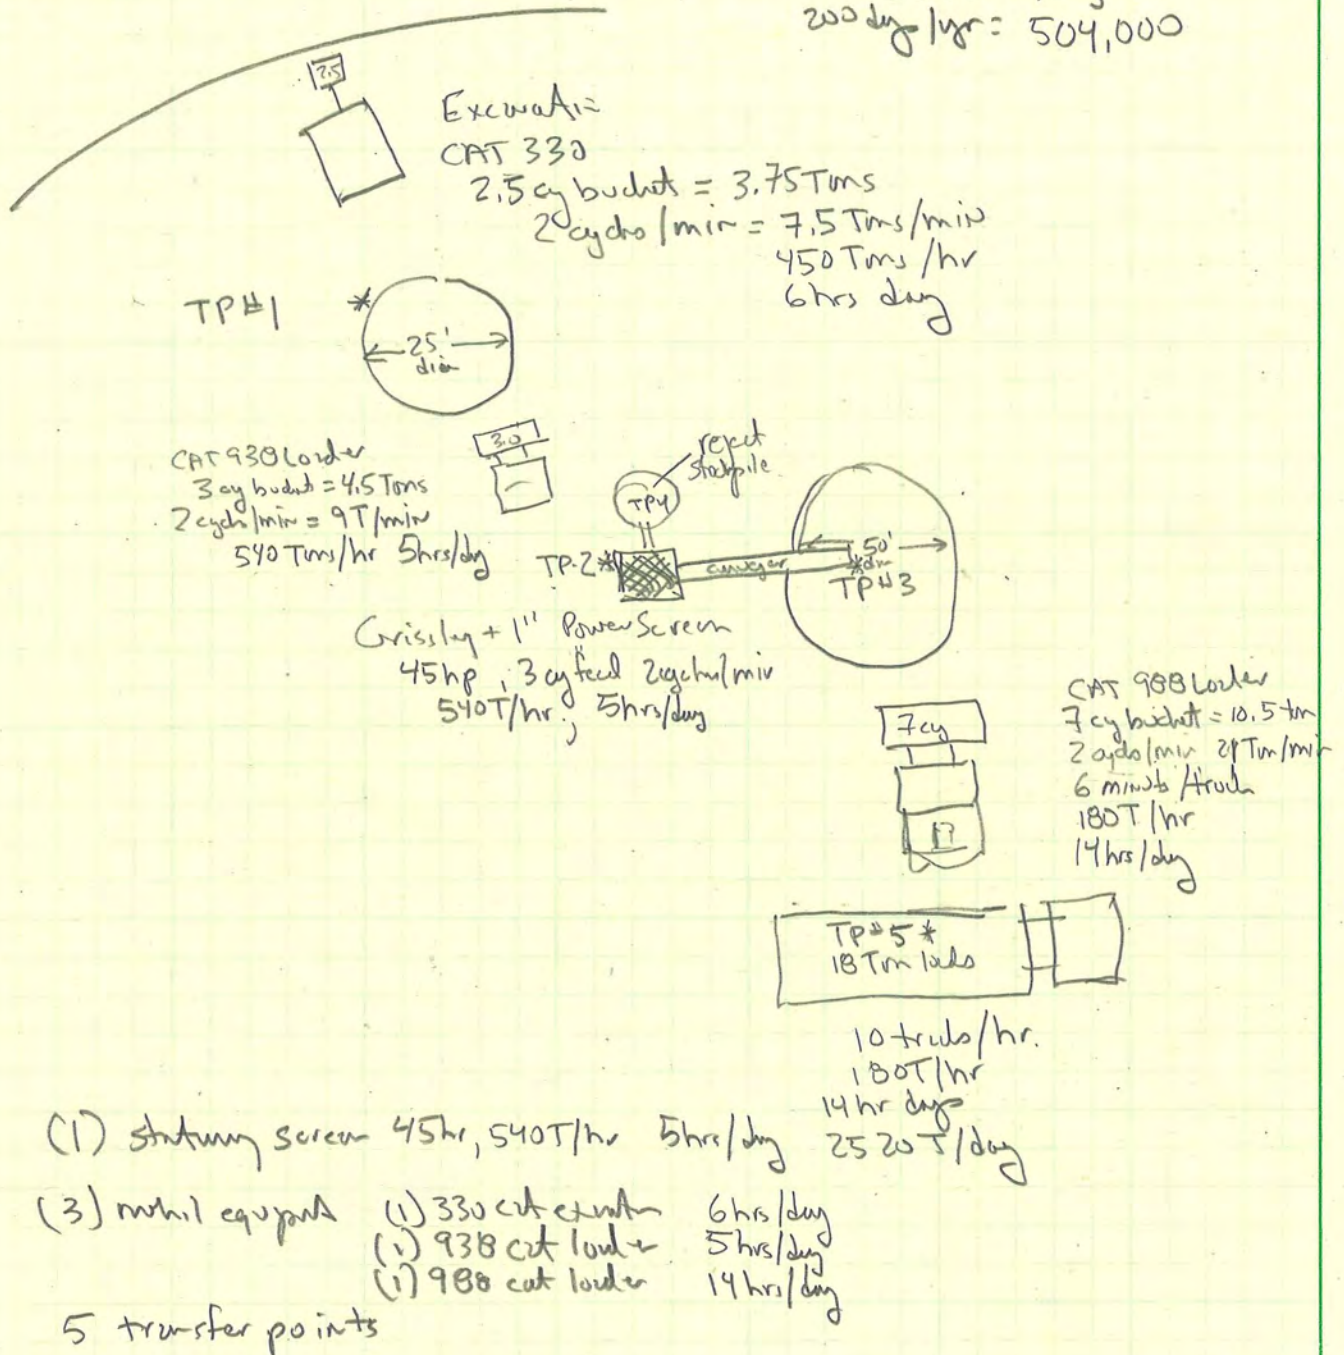 200 dys/yr = 504,000
2.5
Excavati=
CAT 330
2.5 cy bucket = 3.75 Tons
2 cycles/min = 7.5 Tons/min
450 Tons/hr
6 hrs day
TP#1 *
25'
dia
CAT 938 Loader
3 cy bucket = 4.5 Tons
2 cycles/min = 9T/min
540 Tons/hr 5hrs/day
3.0
reject
stockpile
TP4
TP-2*
conveyor
50'
*dia
TP#3
Grissley + 1" Power Screen
45hp, 3 cy feed 2 cycles/min
540T/hr; 5hrs/day
7cy
CAT 988 Loader
7 cy bucket = 10.5 ton
2 cycles/min 21 Ton/min
6 minuts/truck
180T/hr
14hrs/day
TP#5*
18 Ton loads
10 trucks/hr.
180T/hr
14 hr days
2520 T/day
(1) statunry screen 45hr, 540T/hr 5hrs/day
(3) mobil equpmt (1) 330 cat exvatr 6hrs/day
(1) 938 cat loader 5hrs/day
(1) 988 cat loader 14hrs/day
5 transfer points